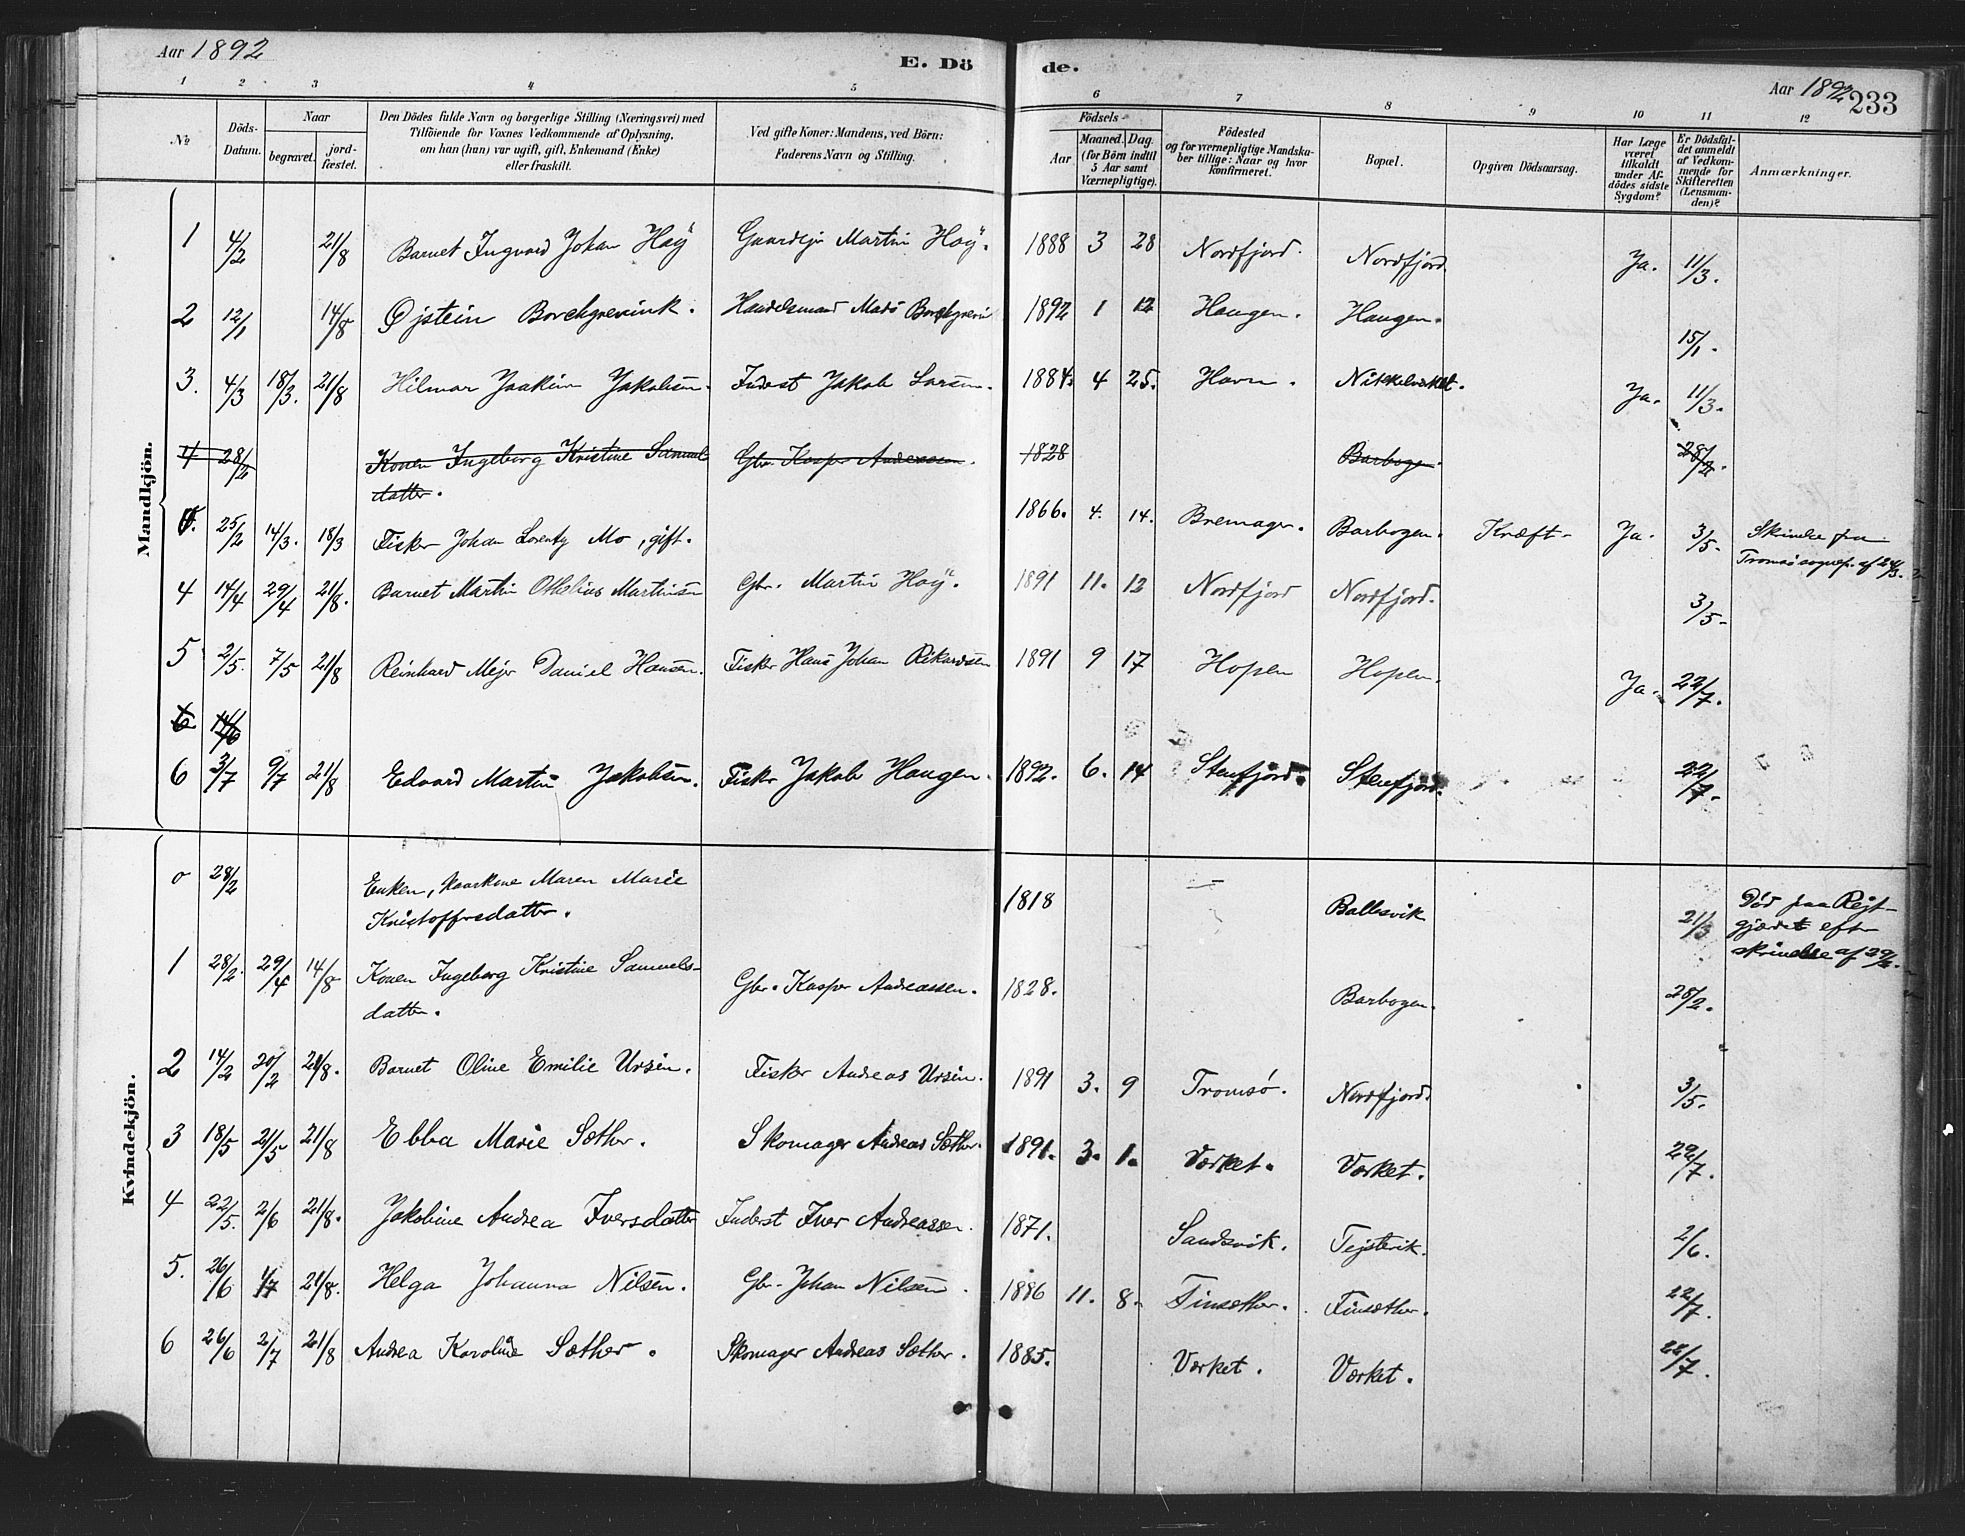 Aar 1892
E. Dö
de.
Aar 1892
233
1 2 3 4 5 6 7 8 9 10 11 12
№
Döds-
Datum.
Naar
begravet.
jord-
fæstet.
Den Dödes fulde Navn og borgerlige Stilling (Næringsvei) med
Tilföiende for Voxnes Vedkommende af Oplysning,
om han (hun) var ugift, gift, Enkemand (Enke)
eller fraskilt.
Ved gifte Koner: Mandens, ved Börn:
Faderens Navn og Stilling.
Födsels-
Aar
Maaned. Dag.
(for Börn indtil
5 Aar samt
Værnepligtige).
Födested
og for værnepligtige Mandska-
ber tillige: Naar og hvor
konfirmeret.
Bopæl.
Opgiven Dödsaarsag.
Har Læge
været
tilkaldt
under Af-
dödes sidste
Sygdom?
Er Dödsfal-
det anmeldt
af Vedkom-
mende for
Skifteretten
(Lensman-
den)?
Anmærkninger.
Mandkjön.
1 4/2 21/8 Barnet Ingvard Johan Høy Martin Høy. 1888 3 28 Nordfjord. Nordfjord Ja. 11/3.
2 12/1 14/8 Øjstein Borchgrevink. Handelsmand Mads Borchgrevin 1892 1 12 Haugen. Haugen. 15/1.
3. 4/3 18/3. 21/8 Hilmar Joakim Jakobsen. Inderst Jakob Larsen. 1884. 4 25. Havn. Nikkelverket. Ja. 11/3.
4 28/2 Konen Ingeborg Kristine Samuels Gbr. Kasper Andreassen. 1828 Barbogen. 28/2.
datter.
25/2 14/3. 18/3 Fisker Johan Lorentz Mo, gift. 1866. 4. 14. Bremager. Barbogen. Kræft- Ja. 3/5. Skrivelse fra
Tromsö sognep. af 24/3.
4 14/4 29/4 21/8. Barnet Martin Othelius Martinsen Gbr. Martin Høy. 1891 11. 12 Nordfjord Nordfjord. 3/5.
5 2/5. 7/5 21/8 Reinhard Mejer Daniel Hansen. Fisker Hans Johan Rikardsen 1891 9 17 Hopen Hopen. Ja. 22/7.
6 14/6
6 3/7 9/7 21/8 Edvard Martin Jakobsen. Fisker Jakob Haugen. 1892. 6. 14 Stenfjord. Stenfjord. 22/7.
Kvindekjön.
0 28/2 Enken, Maren Marie 1818 Ballesvik 21/3 Död paa Rejt-
Kristoffersdatter. gjærdet efter
skrivelse af 29/2.
1 28/2. 29/4 14/8 Konen Ingeborg Kristine Samuels- Gbr. Kasper Andreassen. 1828. Barbogen. 28/2.
datter.
2 14/2 20/2 21/8. Barnet Oline Emilie Ursin. Fisker Andreas Ursin. 1891 3. 9 Tromsø. Nordfjord. 3/5.
3 18/5 21/5 21/8 Ebba Marie Sæther. Skomager Andreas Sæther. 1891. 3. 1. Værket. Værket. 22/7.
4 22/5. 2/6 21/8. Jakobine Andrea Iversdatter Inderst Iver Andreassen. 1871. Sandsvik. Tejstevik. 2/6.
5. 26/6 1/7 21/8. Helga Johanna Nilsen. Gbr. Johan Nilsen. 1886 11. 8. Finsæther. Finsæther. 22/7.
6 26/6 2/7 21/8 Andrea Karoline Sæther. Skomager Andreas Sæther. 1885. Værket. Værket. 22/7.